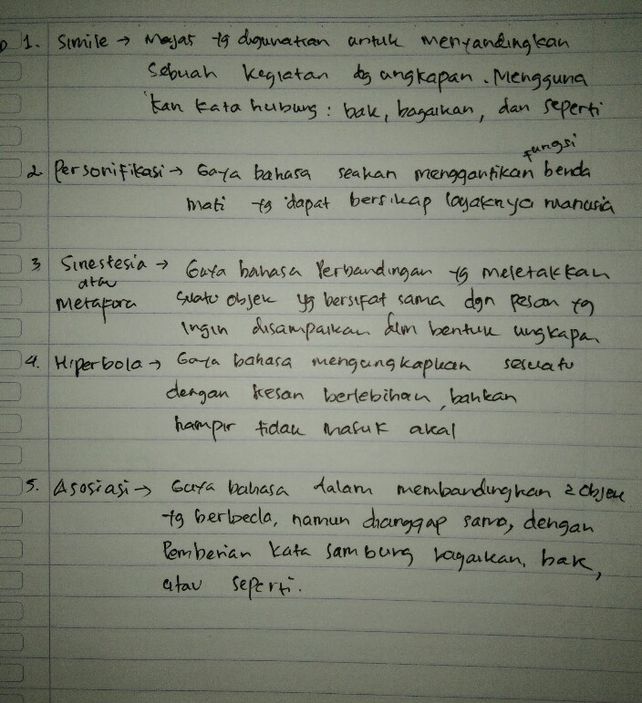 1. Simile → Majas yg digunakan untuk menyandingkan
sebuah kegiatan dg ungkapan. Mengguna
kan kata hubung : bak, bagaikan, dan seperti
fungsi
2. Personifikasi → Gaya bahasa seakan menggantikan benda
mati yg dapat bersikap layaknya manusia
3 Sinestesia → Gaya bahasa Perbandingan yg meletakkan
atau
Metafora suatu objek yg bersifat sama dgn pesan yg
ingin disampaikan dlm bentuk ungkapan
4. Hiperbola → Gaya bahasa mengungkapkan sesuatu
dengan kesan berlebihan, bahkan
hampir tidak masuk akal
5. Asosiasi → Gaya bahasa dalam membandingkan 2 objek
yg berbeda, namun dianggap sama, dengan
Pemberian kata sambung bagaikan, bak,
atau seperti.